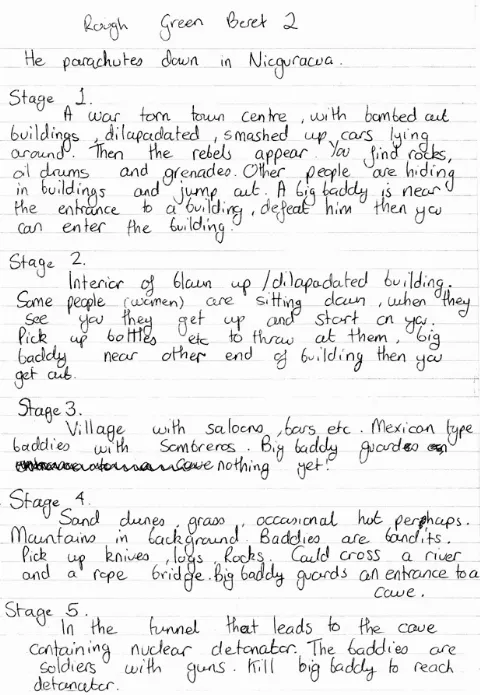 Rough Green Beret 2
He parachutes down in Nicguracua.
Stage 1.
A war torn town centre, with bombed out
buildings, dilapadated, smashed up cars lying
around. Then the rebels appear. You find rocks,
oil drums and grenades. Other people are hiding
in buildings and jump out. A big baddy is near
the entrance to a building, defeat him then you
can enter the building.
Stage 2.
Interior of blown up / dilapadated building.
Some people (women) are sitting down, when they
see you they get up and start on you.
Pick up bottles etc to throw at them, big
baddy near other end of building then you
get out.
Stage 3.
Village with saloons, bars etc. Mexican type
baddies with Sombreros. Big baddy guards
cave nothing yet!
Stage 4.
Sand dunes, grass, occasional hut perhaps.
Mountains in background. Baddies are bandits.
Pick up knives, logs, Rocks. Could cross a river
and a rope bridge. Big baddy guards an entrance to a
cave.
Stage 5.
In the tunnel that leads to the cave
containing nuclear detonator. The baddies are
soldiers with guns. Kill big baddy to reach
detonator.